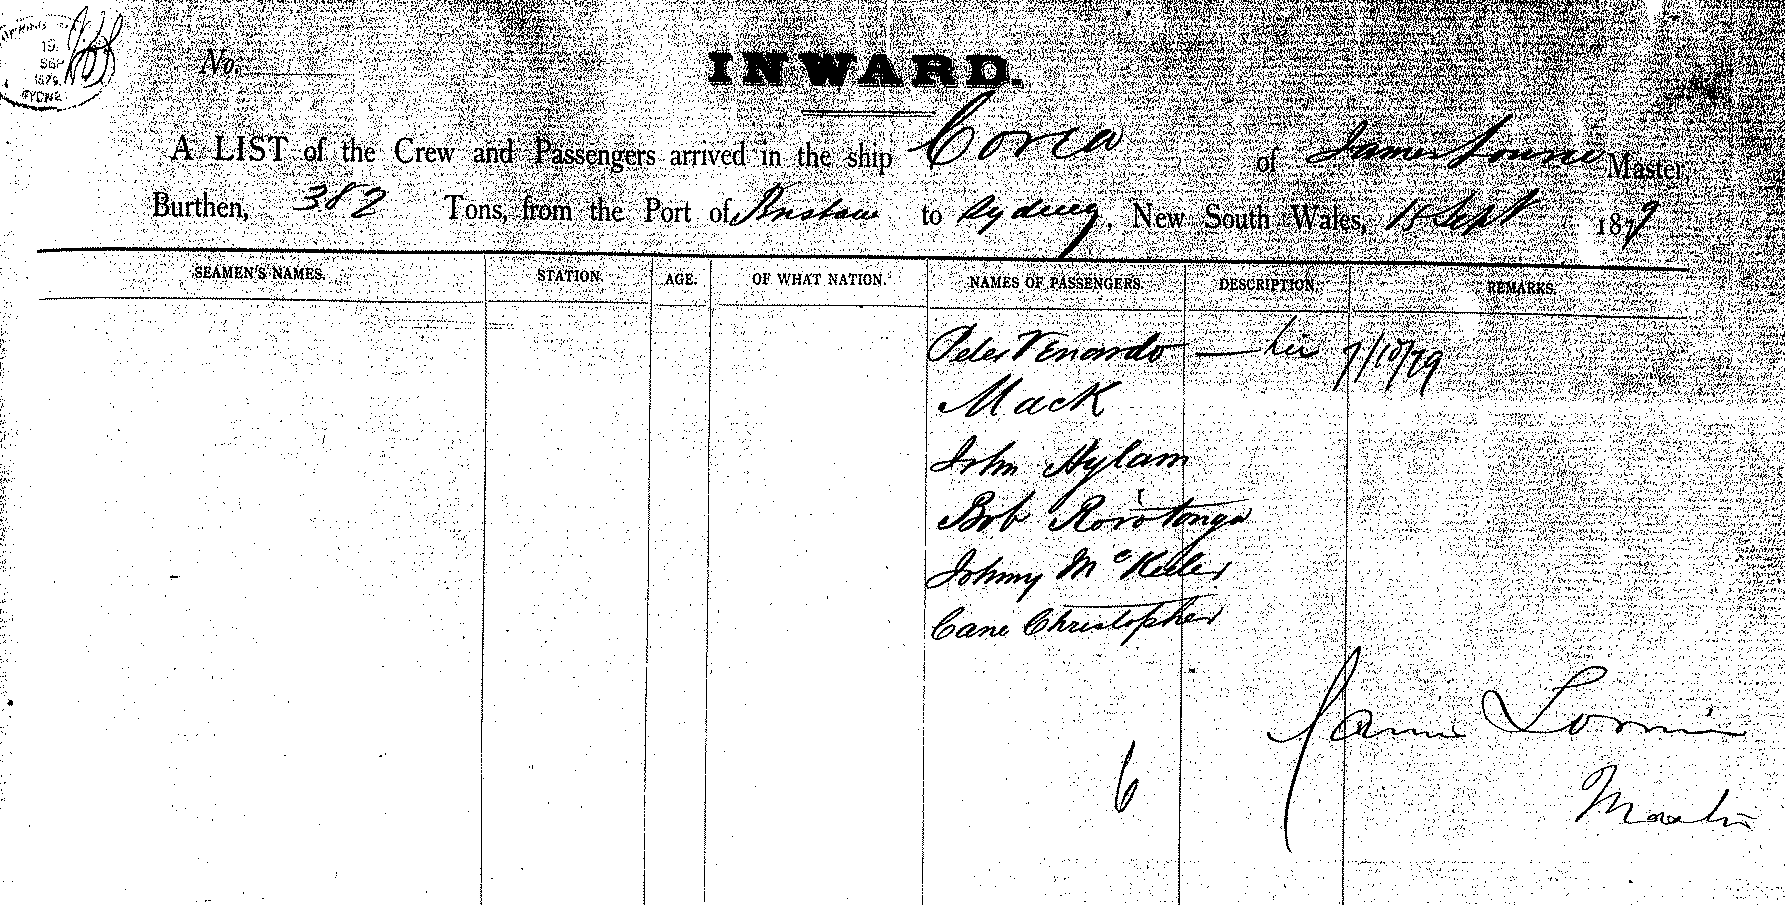 SEP
1879
SYDNE
No.
INWARD.
A LIST of the Crew and Passengers arrived in the ship Corea of James Master,
Burthen, 382 Tons, from the Port of to Sydney, New South Wales, 18 Sept 1879
SEAMEN'S NAMES. STATION. AGE. OF WHAT NATION. NAMES OF PASSENGERS. DESCRIPTION. REMARKS.
Peter Venardo 7/10/79
Mack
John Hylam
Bob Rorotonga
Johnny McKeeler
Cane Christopher
6
Master